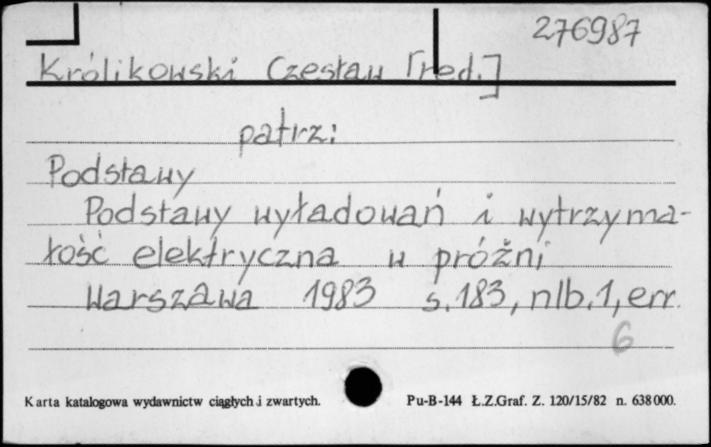 276987
Królikowski Czesław [red.]
patrz:
Podstawy
Podstawy wyładowań i wytrzyma-
łość elektryczna w próżni
Warszawa 1983 s.183, nlb.1, err.
6
Karta katalogowa wydawnictw ciągłych i zwartych. Pu-B-144 Ł.Z.Graf. Z. 120/15/82 n. 638000.